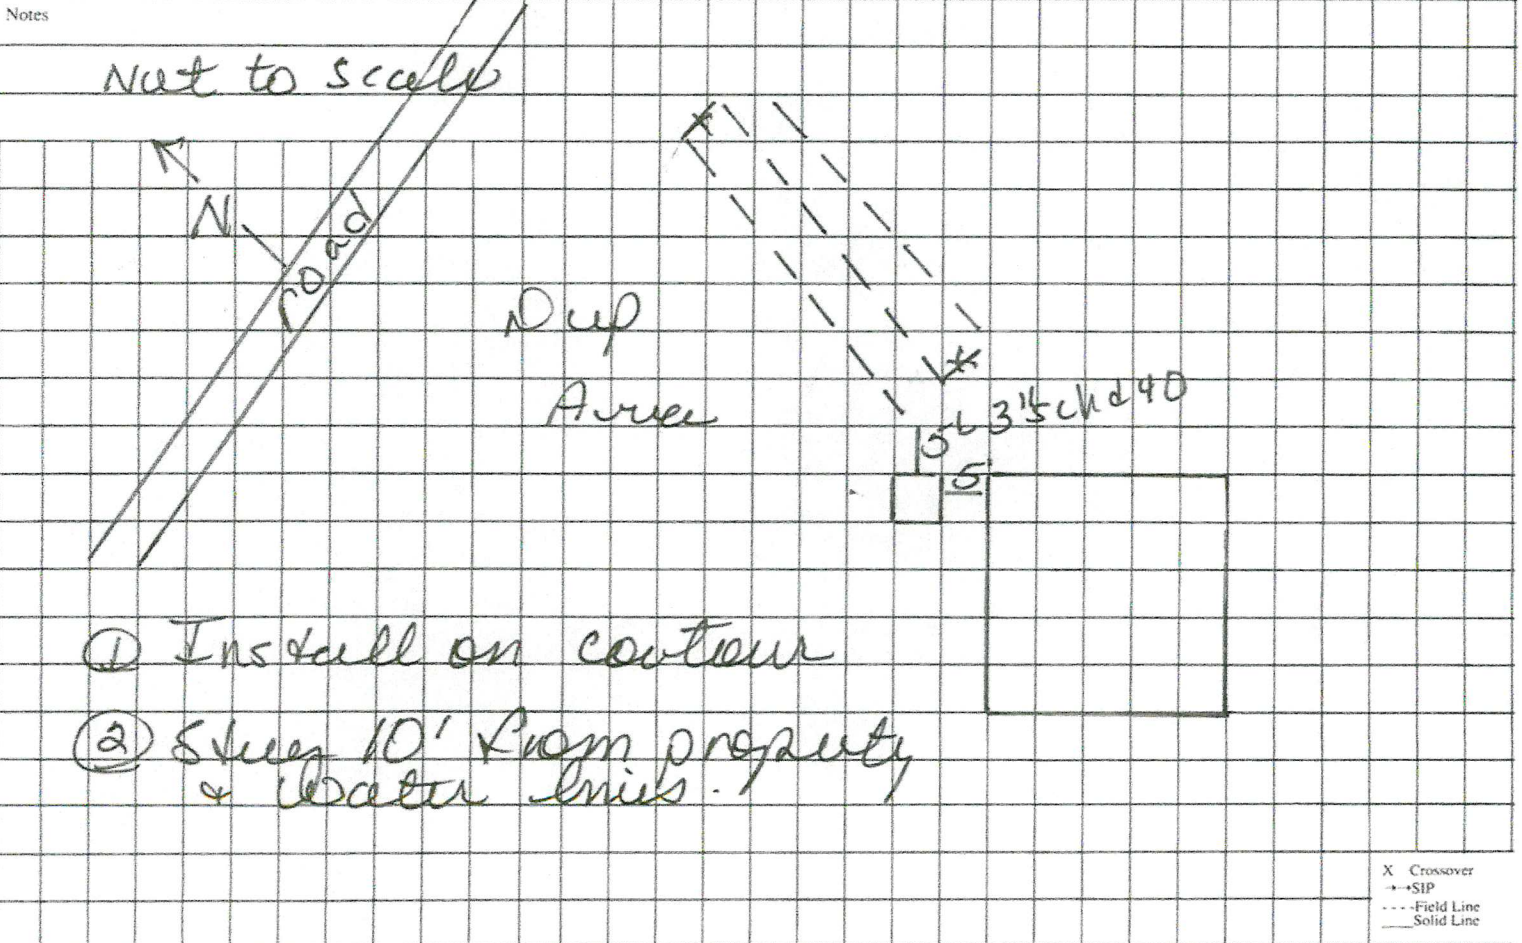 Notes
Not to scale
N
road
Dup
Area
5' 3" schd 40
5'
① Install on contour
② Stay 10' from property
& water lines.
X Crossover
SIP
----Field Line
____Solid Line